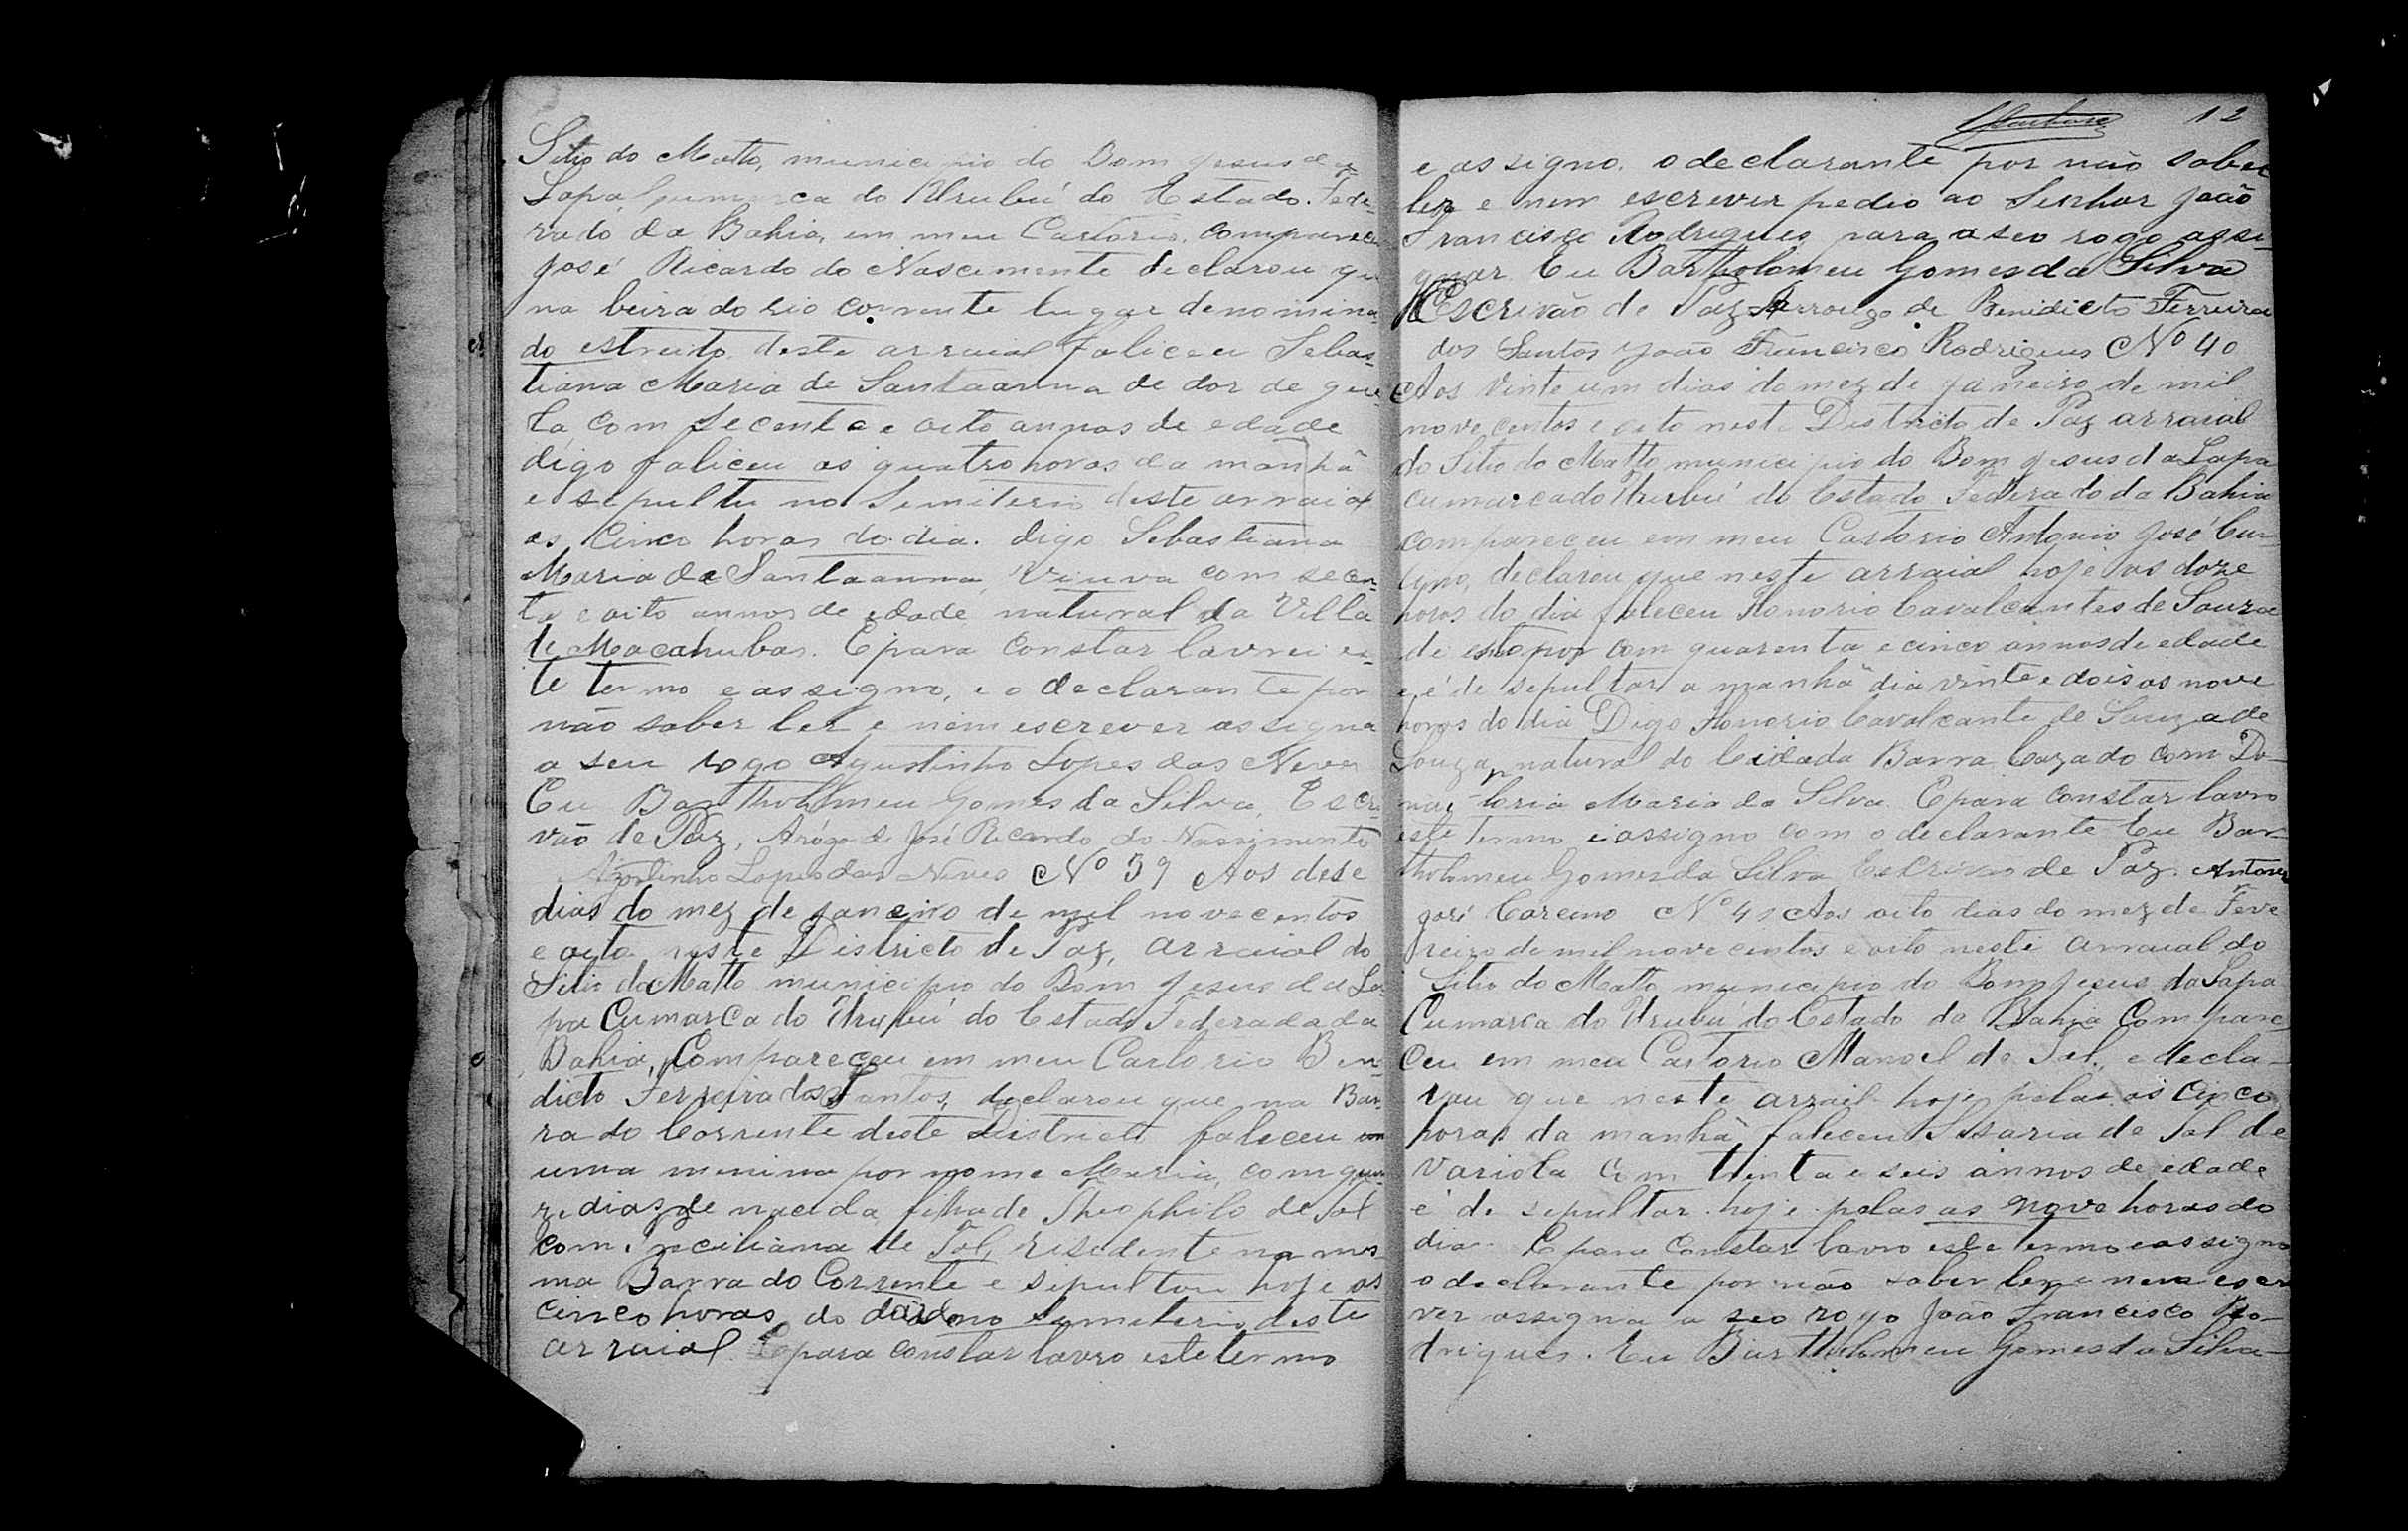 Sitio do Matto, municipio do Bom Jesus da
Lapa, cumarca do Urubú do Estado Fede-
rado da Bahia, em meu Cartorio, compareceu
José Ricardo do Nascimente declarou que
na beira do rio corrente lugar denomina-
do estreito deste arraial faliceu Sebas-
tiana Maria de Santaanna de dor de gue-
la com secenta e oito annos de edade
digo faliceu as quatro horas da manhã
e sepultu no Simiterio deste arraial
as Cinco horas do dia. digo Sebastiana
Maria de Santaanna, Viuva com secen-
ta e oito annos de edade natural da Villa
de Macahubas. E para constar lavrei es-
te termo e assigno, e o declarante por
não saber ler e nem escrever assigna
a seu rogo Agustinho Lopes das Neves
Eu Bartholhmeu Gomes da Silva, Escri-
vão de Paz, Arógo de José Ricardo do Nassimento
Agostinho Lopes das Neves Nº 39 Aos dese
dias do mez de janeiro de mil novecentos
e oito neste Districto de Paz, arraial do
Sitio do Matto municipio do Bom Jesus da La-
pa Cumarca do Urubú do Estado Federada da
Bahia, Compareceu em meu Cartorio Ben-
dicto Ferreira dos Santos, declarou que na Bar-
ra do Corrente deste Districto faleceu
uma menina por nome Maria, com quin-
ze dias de nacida filha de Theophilo de Sol
com ciliana de Sol, risedente na mes
ma Barra do Corrente e sipultou hoje as
cinco horas do dia no Simiterio deste
arraial. E para constar lavro este termo
12
e assigno. o declarante por não saber
ler e nem escrever pedio ao Senhor João
Francisco Rodrigues para a seo rogo assi-
gnar Eu Bartholomeu Gomes da Silva
Escrivão de Paz Arroigo de Benidicto Ferreira
dos Santos João Francisco Rodrigues Nº 40
Aos Vinte um dias do mez de janeiro de mil
novecentos e oito neste Districto de Paz arraial
do Sitio do Matto municipio do Bom Jesus da Lapa
cumarca do Urubú do Estado Federado da Bahia
compareceu em meu Cartorio Antonio José
declarou que neste arraial hoje as doze
horas do dia faleceu Honorio Cavalcantes de Souza
de estopor com quarenta e cinco annos de edade
e é de sepultar a manhã dia vinte e dois as nove
horas do dia Digo Honorio Cavalcante de Souza de
Souza, natural do Cidada Barra Cazado com Do-
na loria Maria da Silva E para constar lavro
este termo e assigno com o declarante Eu Bar-
tholmeu Gomes da Silva Escrivão de Paz. Antonio
José Nº 41 Aos oito dias do mez de Feve
reiro de mil novecentos e oito neste arraial do
Sitio do Matto municipio do Bom Jesus da Lapa
Cumarca do Urubú do Estado da Bahia Compare
ceu em meu Cartorio Manoel de Sol, e decla-
rou que neste arrail hoje pelas as Cinco
horas da manhã faleceu Sesaria de Sol de
Variola Com trinta e seis annos de edade
é de sepultar hoje pelas as nove horas do
dia. E para Constar lavro este termo e assigno
o declarante por não saber ler e nem escre
ver assigna a seo rogo João Francisco Ro-
drigues. Eu Bartholomeu Gomes da Silva-